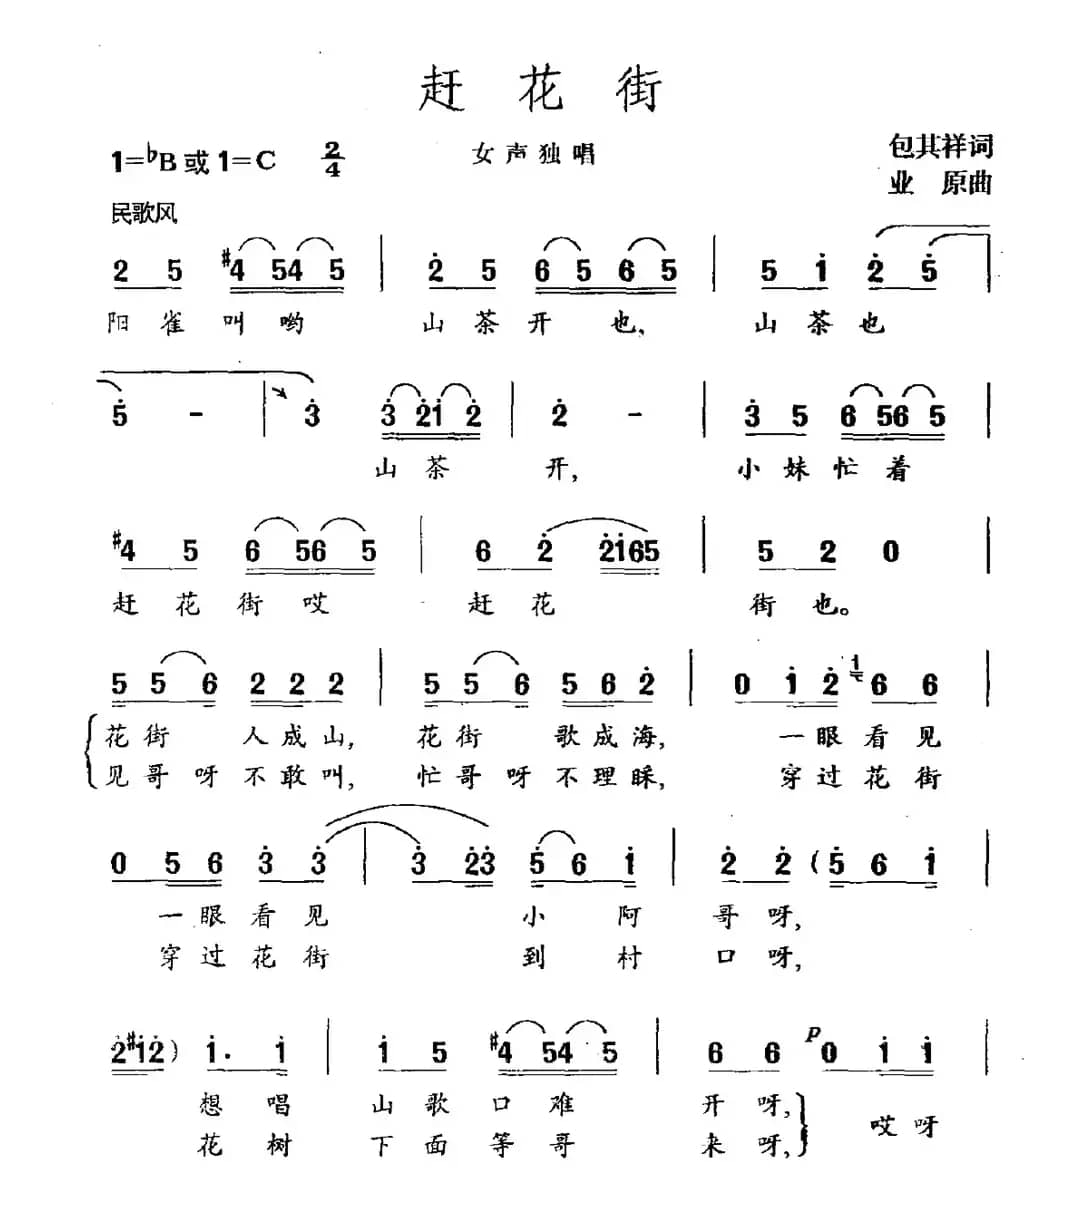 赶花街
1=♭B或1=C 2/4 女声独唱 包其祥词
业原曲
民歌风
2 5 #4 54 5 | 2̇ 5 6 5 6 5 | 5 1̇ 2̇ 5̇
阳雀叫哟 山茶开也, 山茶也
5̇ - | 3̇ 3̇ 2̇1̇ 2̇ | 2̇ - | 3̇ 5 6 56 5 |
山茶开, 小妹忙着
#4 5 6 56 5 | 6 2̇ 2̇1̇65 | 5 2 0 |
赶花街哎 赶花街也。
5 5 6 2 2 2 | 5 5 6 5 6 2̇ | 0 1̇ 2̇ 1̇ 6 6 |
花街人成山, 花街歌成海, 一眼看见
见哥呀不敢叫, 忙哥呀不理睬, 穿过花街
0 5 6 3̇ 3̇ | 3̇ 2̇3̇ 5̇ 6 1̇ | 2̇ 2̇ (5̇ 6 1̇ |
一眼看见小阿哥呀,
穿过花街到村口呀,
2̇#1̇2̇) 1̇. 1̇ | 1̇ 5 #4 54 5 | 6 6 p 0 1̇ 1̇ |
想唱山歌口难开呀, 哎呀
花树下面等哥来呀,